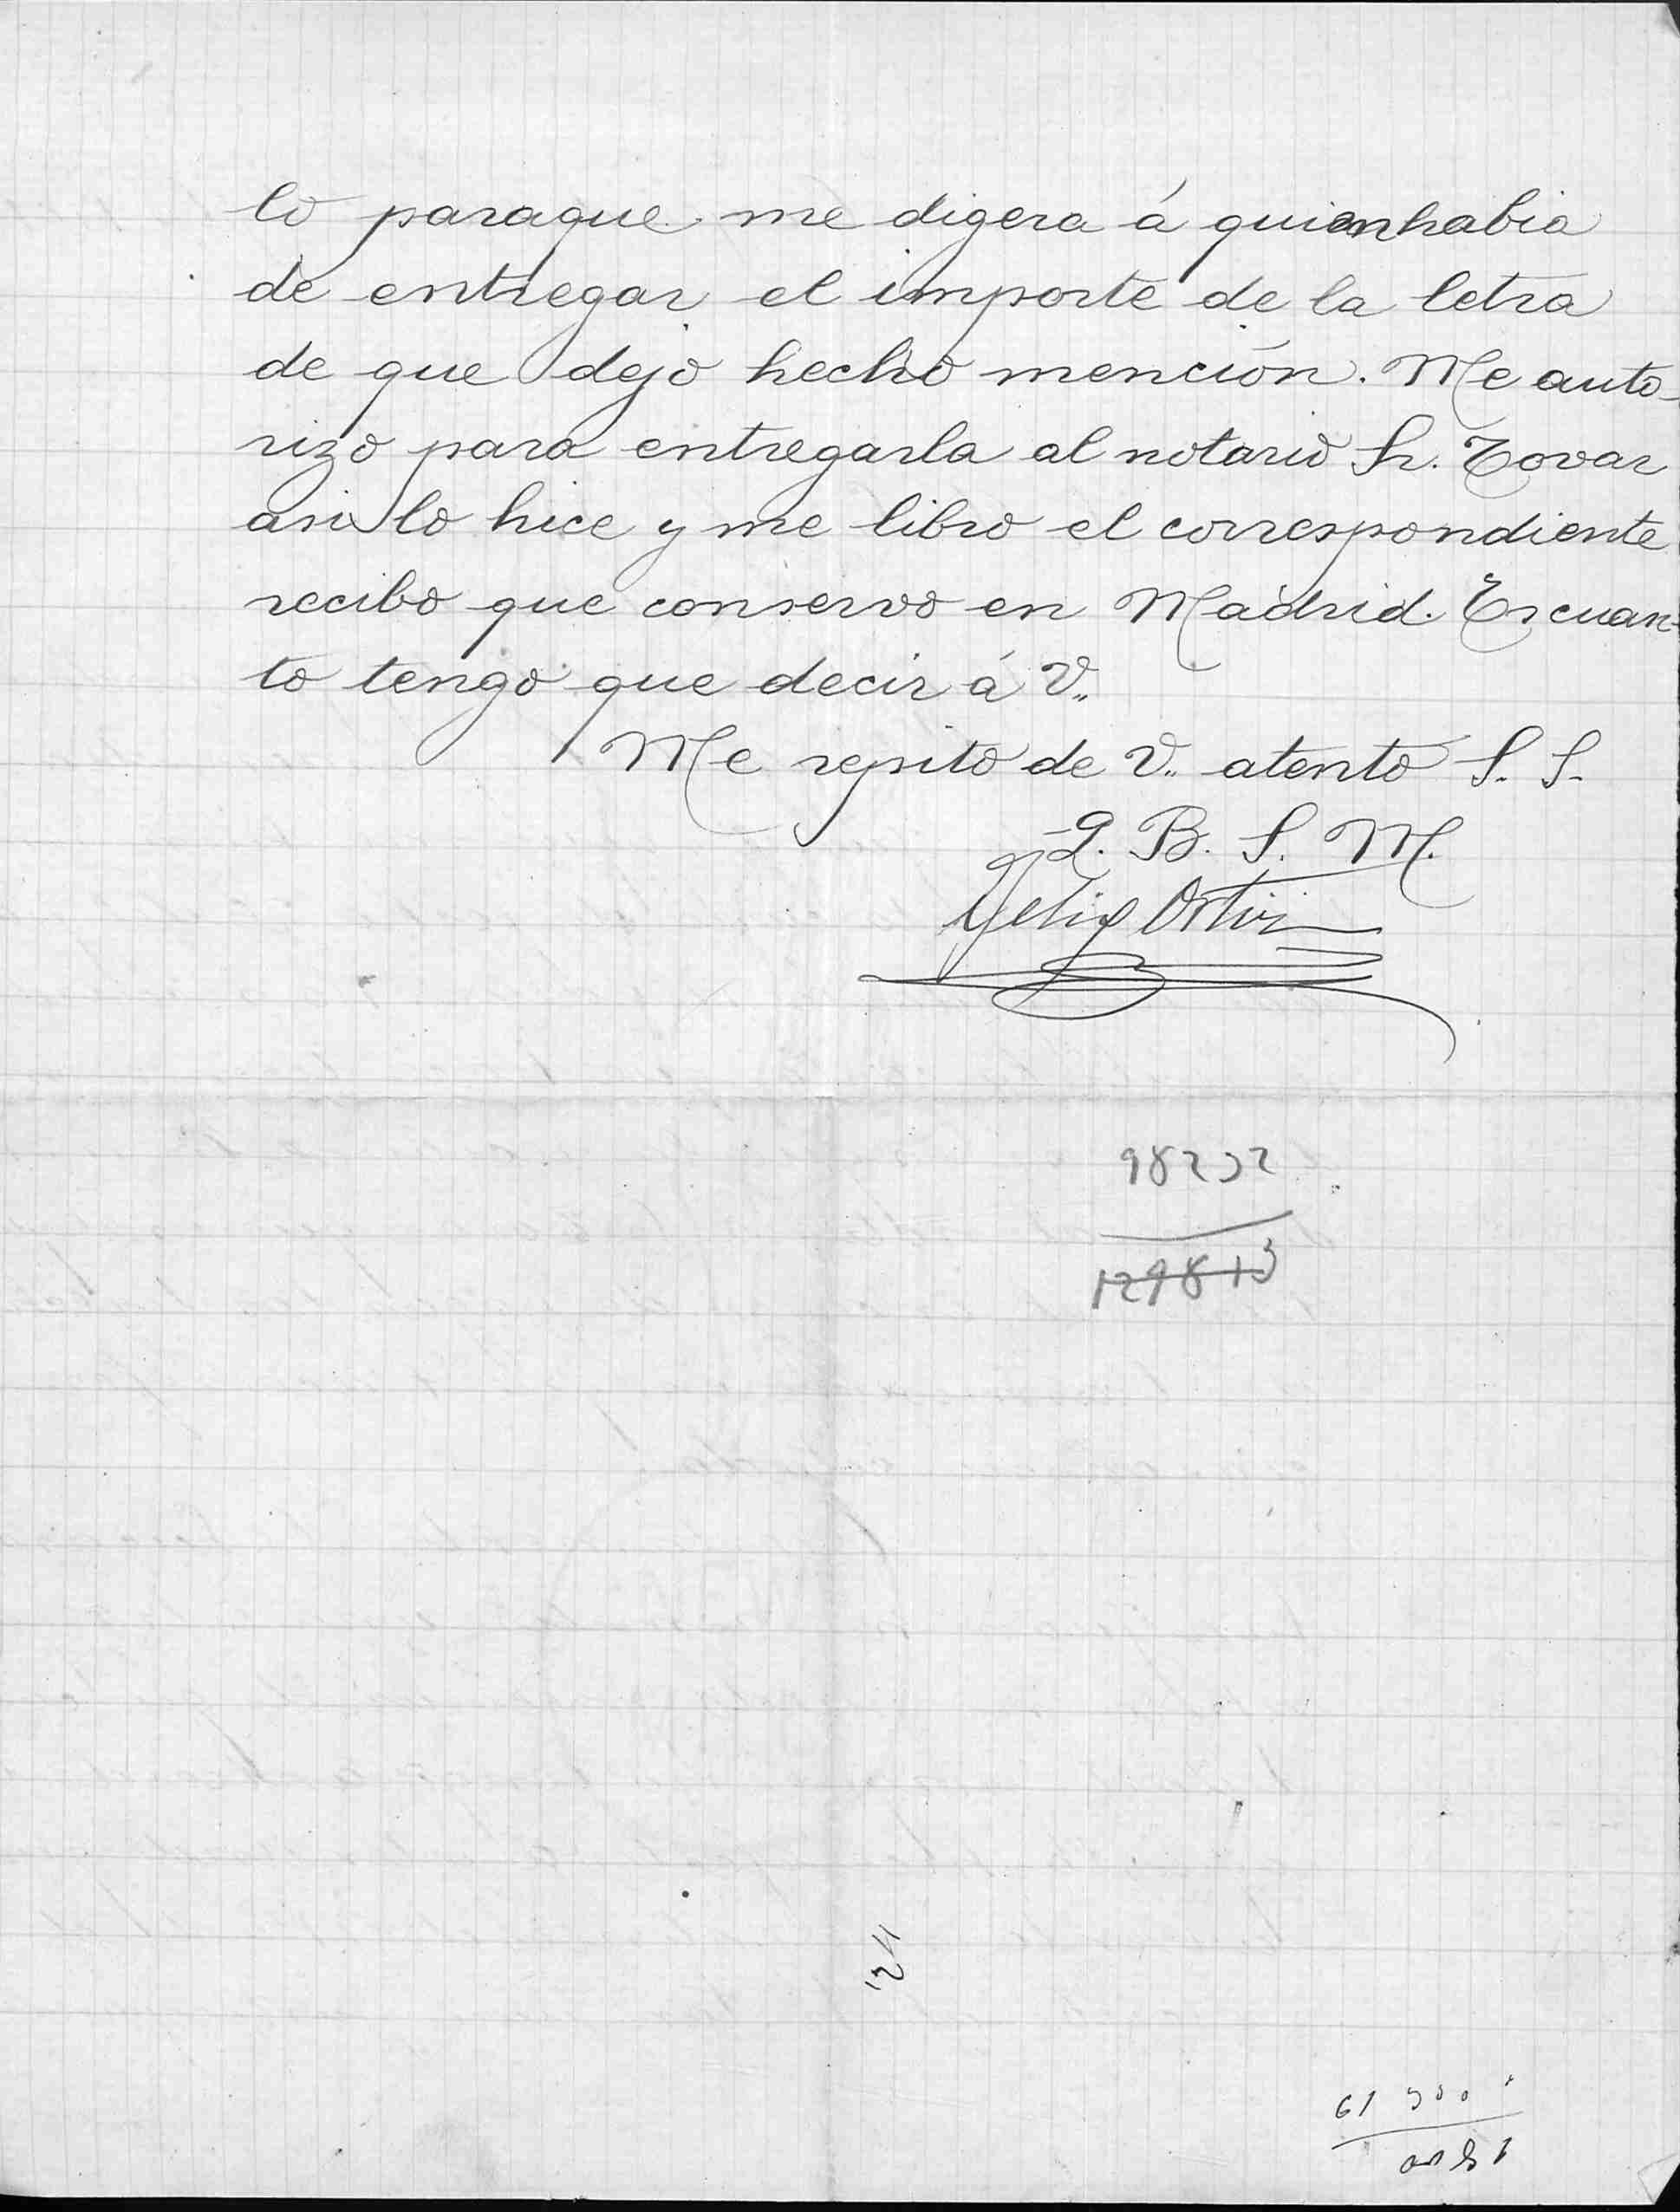 lo paraque me digera á quien habia
de entregar el importe de la letra
de que dejo hecho mención. Me auto-
rizo para entregarla al notario Sr. Tovar
asi lo hice y me libro el correspondiente
recibo que conservo en Madrid. Es cuan-
to tengo que decir á V.
Me repito de V. atento S. S.
Q. B. S. M.
Felix Ortiz
98232
129813